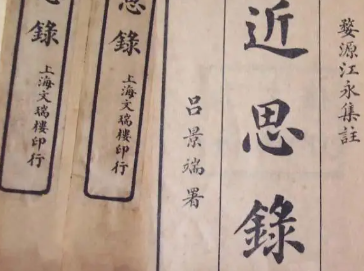 婺源江永集註
近思錄
呂景端署
思錄
上海文瑞樓印行
思錄
上海文瑞樓印行